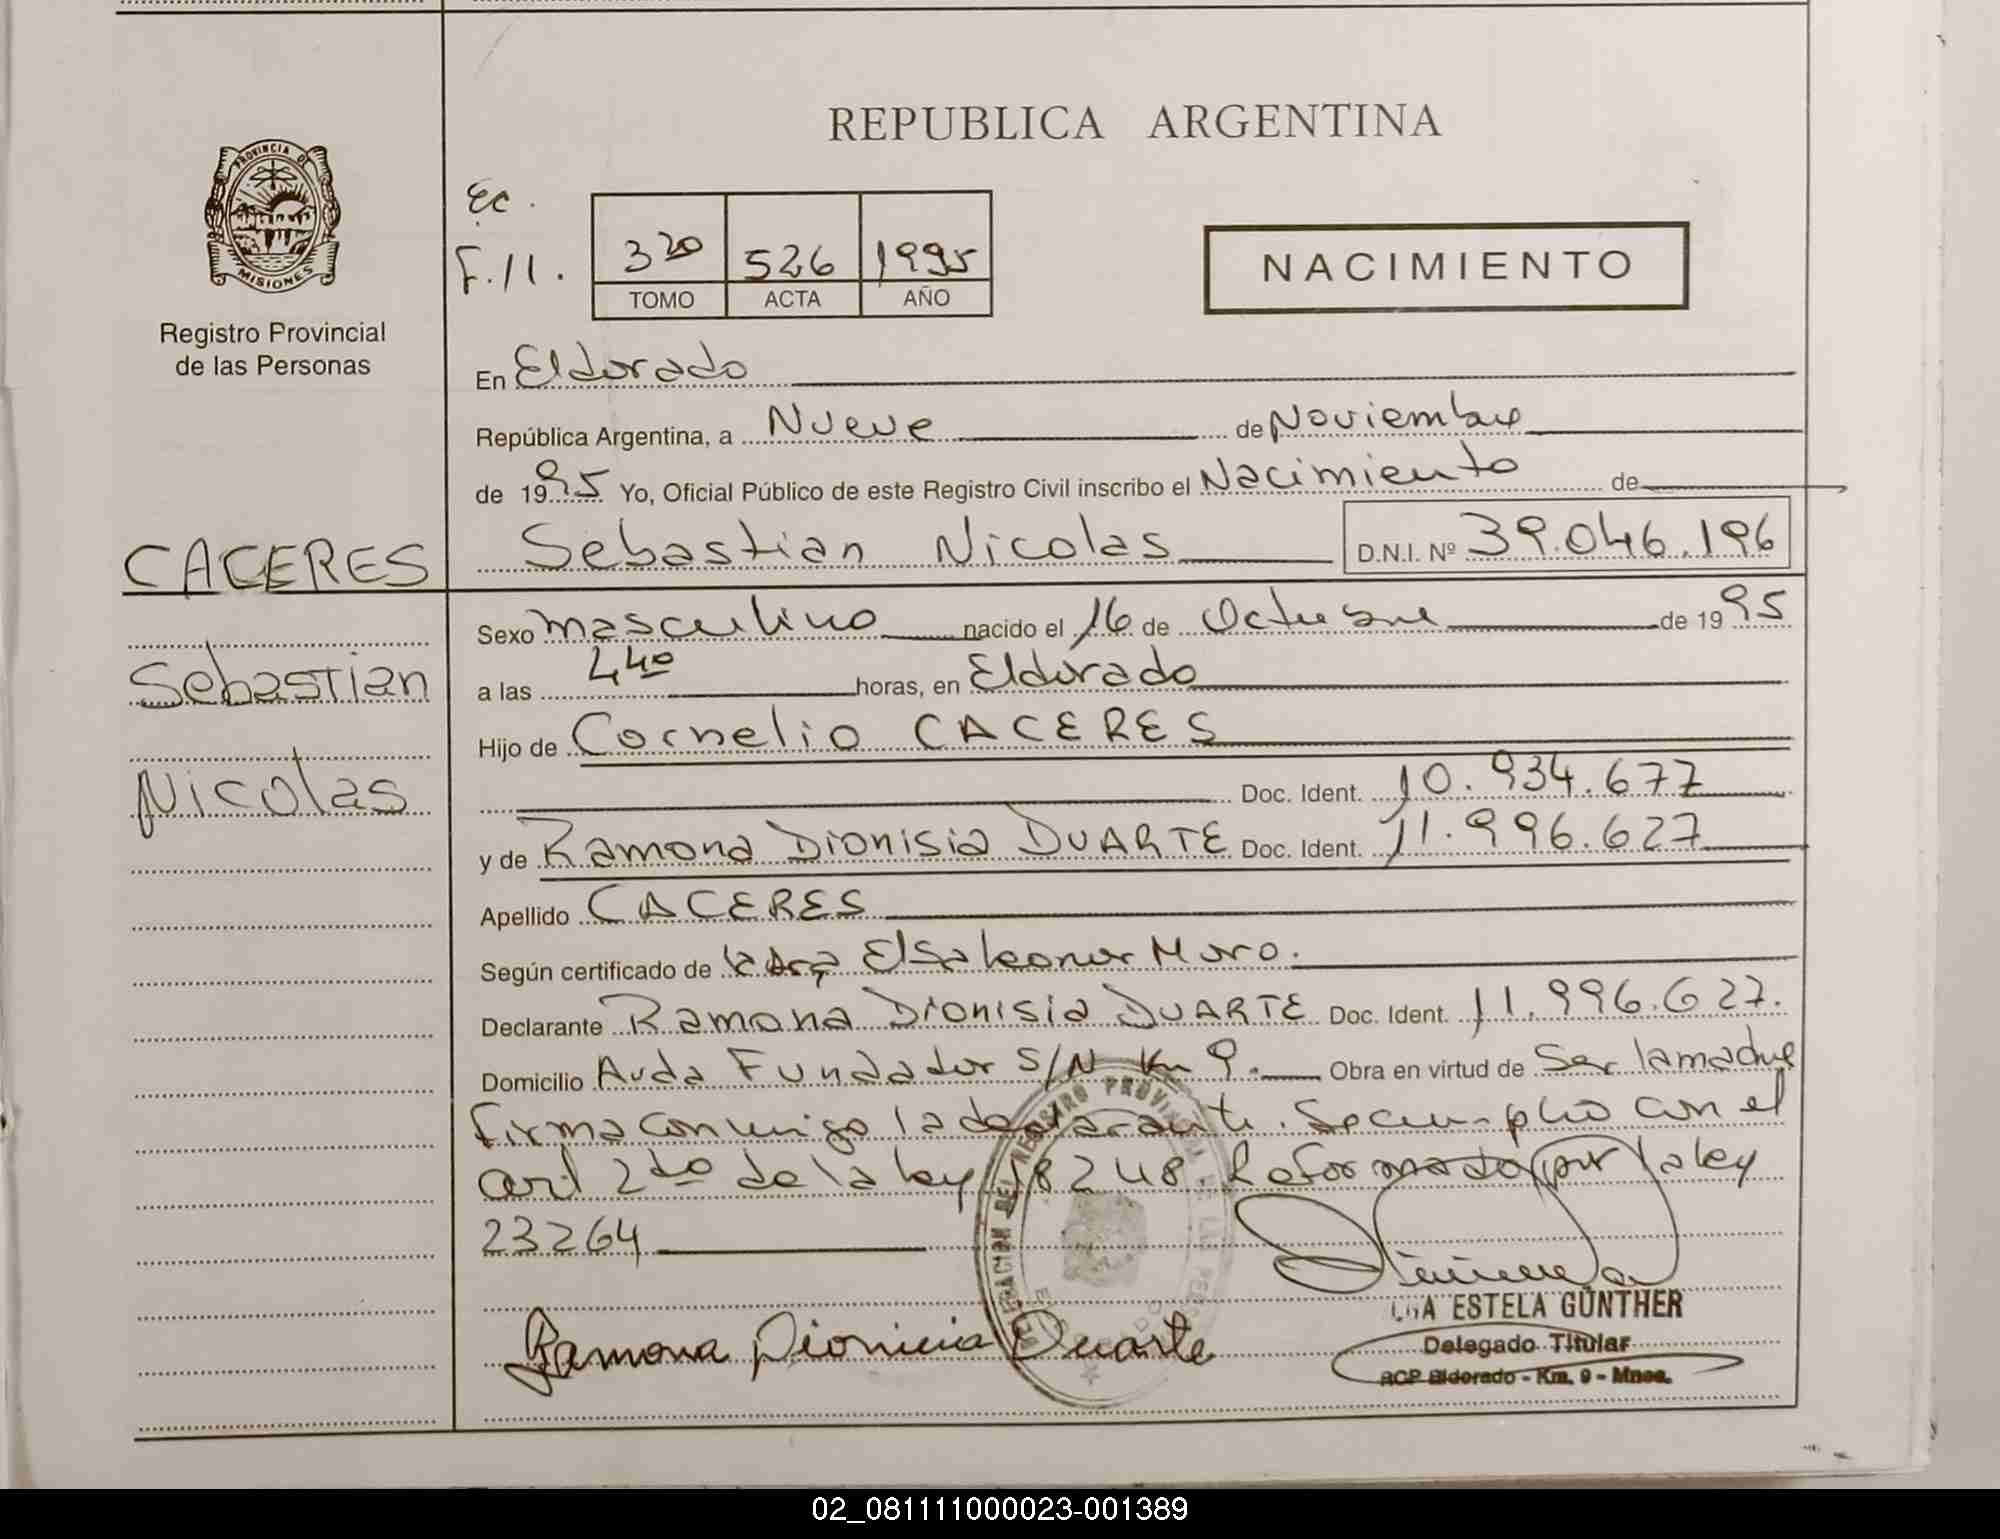 REPUBLICA ARGENTINA
PROVINCIA DE
MISIONES
Registro Provincial
de las Personas
Ec.
F. 11.
320 526 1995
TOMO ACTA AÑO
NACIMIENTO
En Eldorado
República Argentina, a Nueve de Noviembre
de 1995 Yo, Oficial Público de este Registro Civil inscribo el Nacimiento de
CACERES
Sebastian
Nicolas
Sebastian Nicolas D.N.I. Nº 39.046.196
Sexo masculino nacido el 16 de Octubre de 1995
a las 4 40 horas, en Eldorado
Hijo de Cornelio CACERES
Doc. Ident. 10.934.677
y de Ramona Dionisia DUARTE Doc. Ident. 11.996.627
Apellido CACERES
Según certificado de la Dra Elsa Leonor Muro.
Declarante Ramona Dionisia DUARTE Doc. Ident. 11.996.627.
Domicilio Avda Fundador S/N Km 9. Obra en virtud de Ser la madre
firma conmigo la declarante. Se cumplio con el
art 2do de la ley 18248. Reformado por la ley
23264
Ramona Dionicia Duarte
ESTELA GÜNTHER
Delegado Titular
RCP Eldorado - Km. 9 - Mnes.
02_081111000023-001389